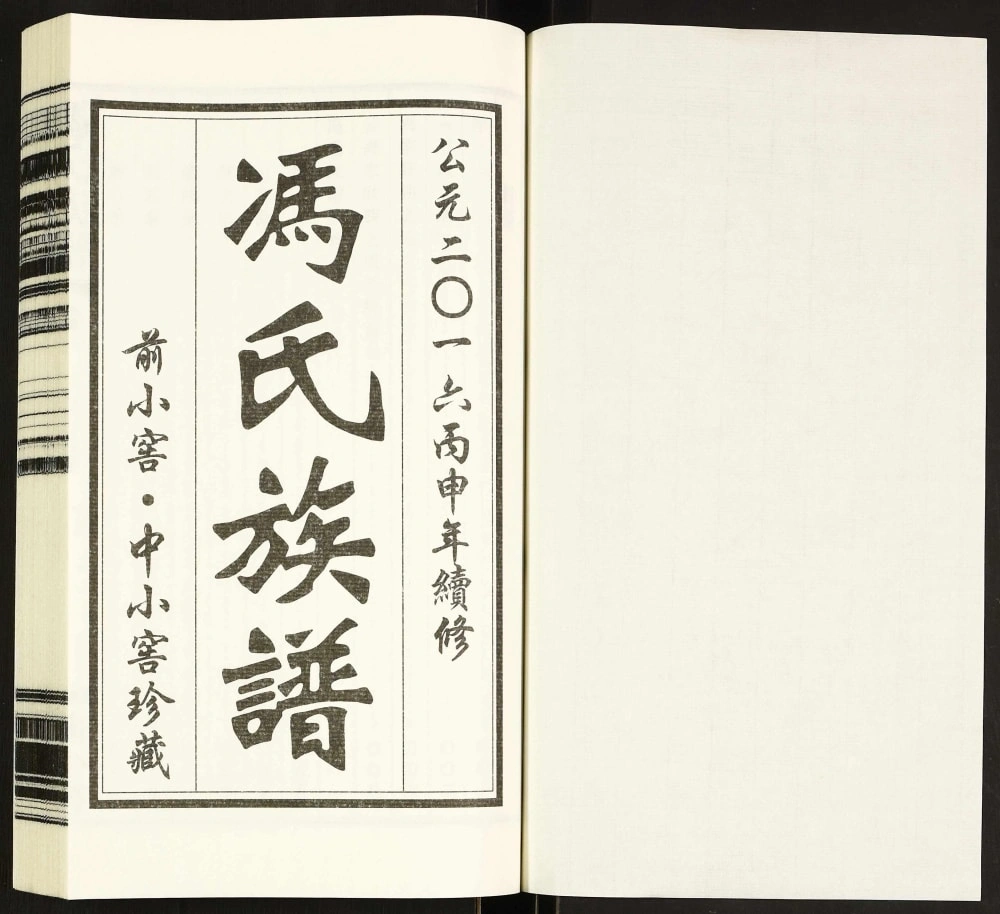 公元二〇一六丙申年續修
馮氏族譜
前小窖·中小窖珍藏